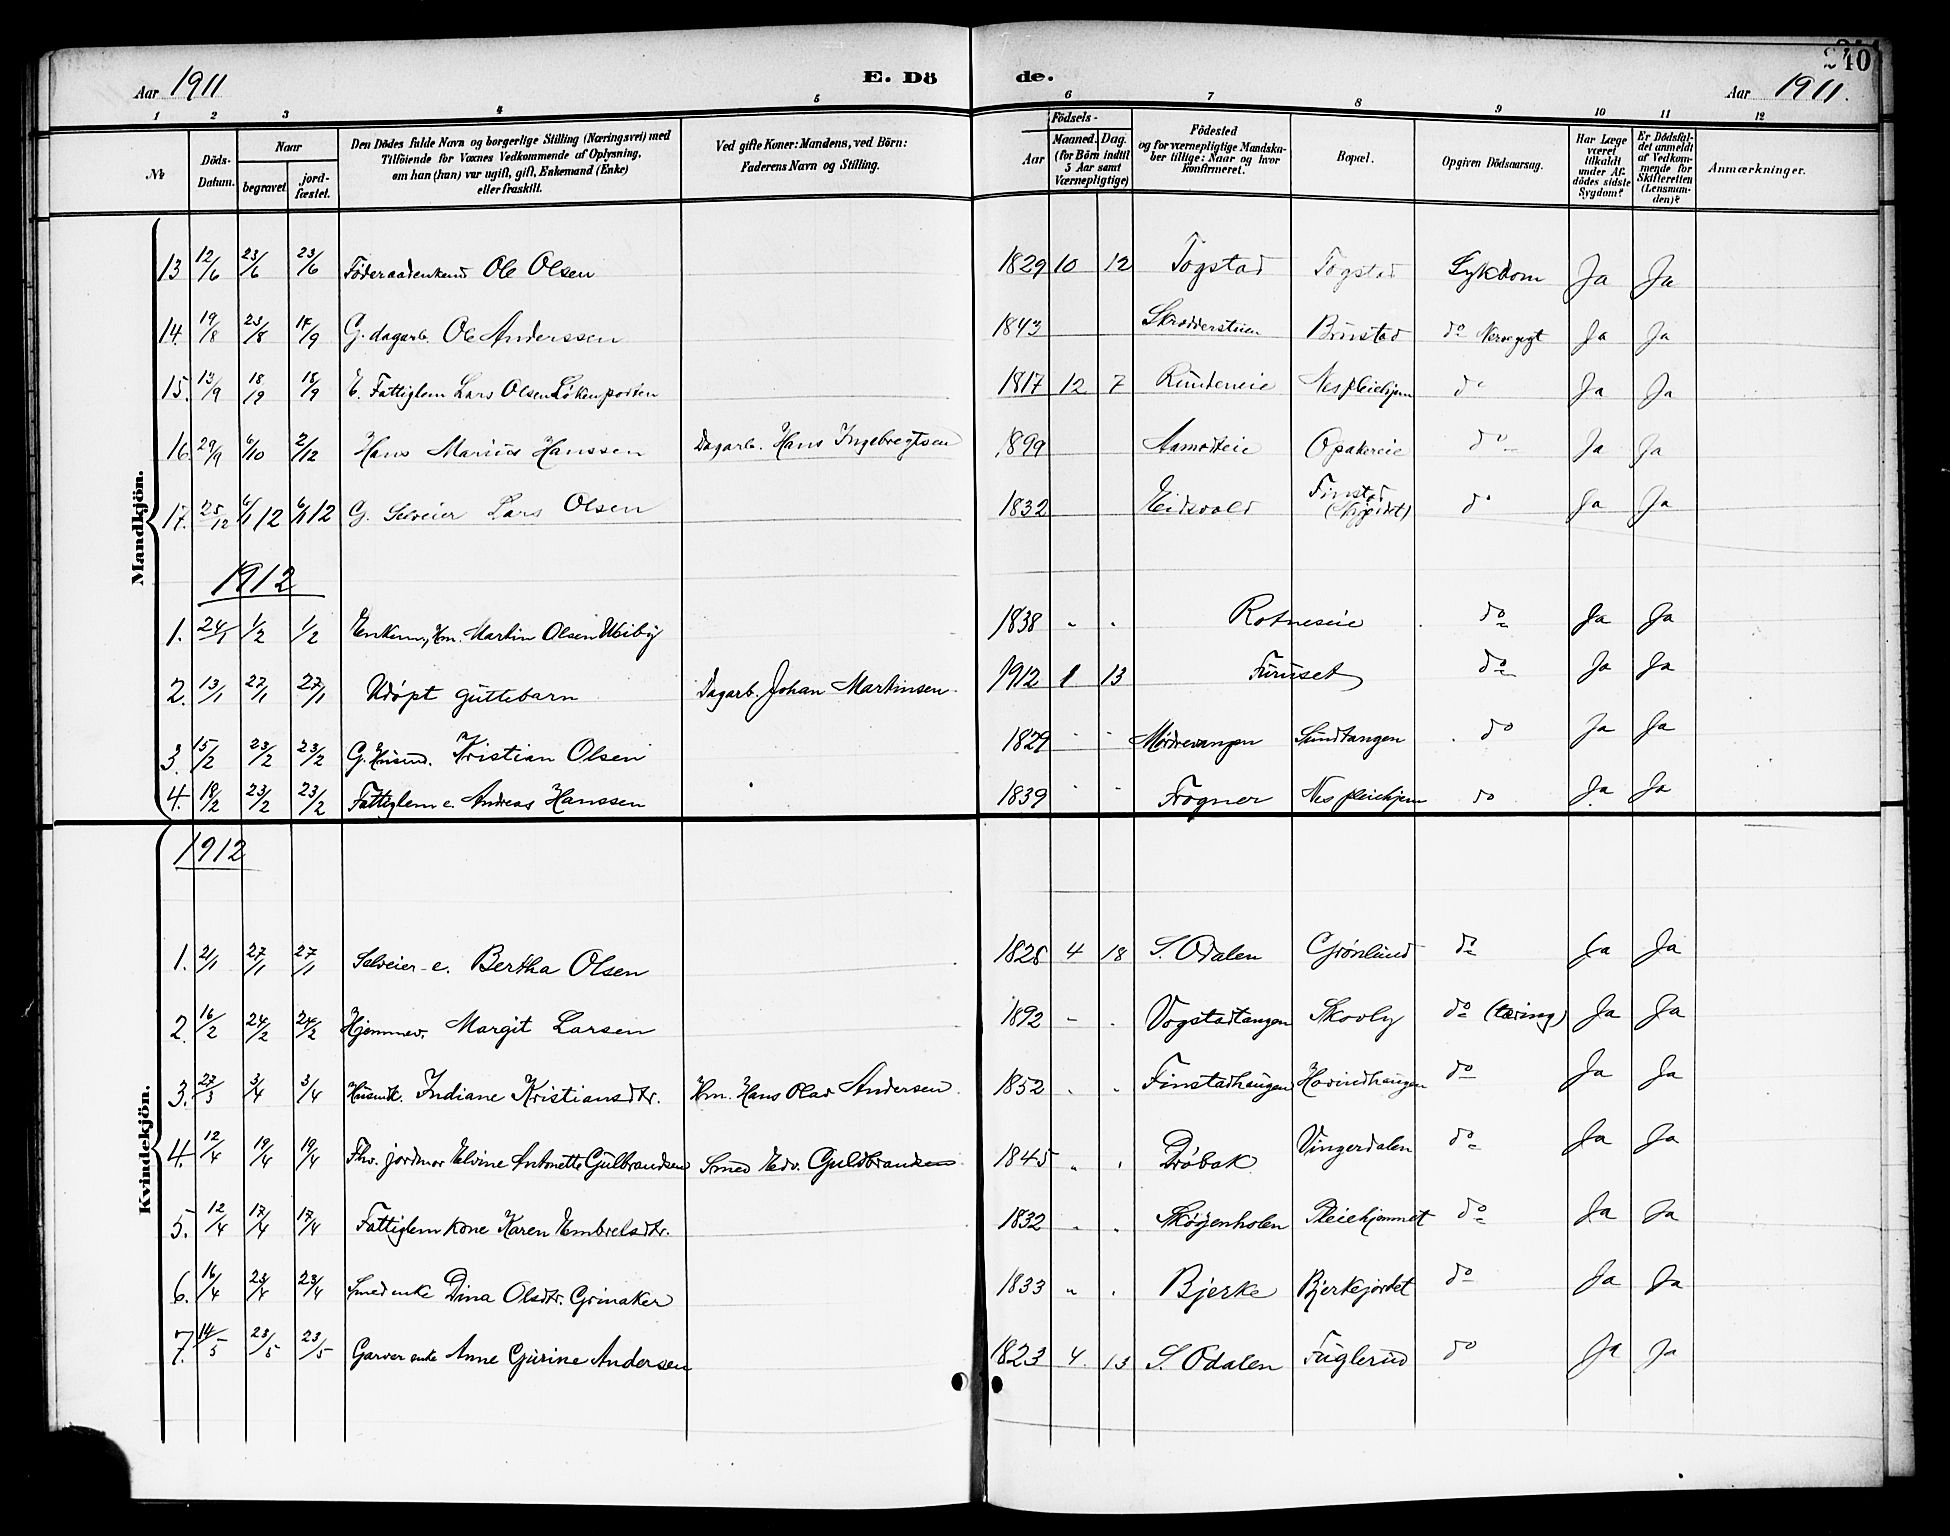 240
Aar 1911 E. Dö de. Aar 1911.
1 2 3 4 5 6 7 8 9 10 11 12
№ Döds-Datum. Naar begravet. jordfæstet. Den Dödes fulde Navn og borgerlige Stilling (Næringsvei) med Tilföiende for Voxnes Vedkommende af Oplysning, om han (hun) var ugift, gift, Enkemand (Enke) eller fraskilt. Ved gifte Koner: Mandens, ved Börn: Faderens Navn og Stilling. Födsels- Aar Maaned. Dag. (for Börn indtil 3 Aar samt Værnepligtige) Födested og for værnepligtige Mandskaber tillige: Naar og hvor konfirmeret. Bopæl. Opgiven Dödsaarsag. Har Læge været tilkaldt under Afdödes sidste Sygdom? Er Dödsfaldet anmeldt af Vedkommende for Skifteretten (Lensmanden)? Anmærkninger.
Mandkjön.
13 12/6 23/6 23/6 Føderaadenkemd Ole Olsen 1829 10 12 Togstad Togstad Sykdom Ja Ja
14. 19/8 23/8 17/9 G. dagarb. Ole Anderssen 1843 Brustad do Ja Ja
15. 13/9 18/9 18/9 E. Fattiglem Lars Olsen Løkenporten 1817 12 7 Rundereie Nes pleiehjem do Ja Ja
16. 29/9 6/10 2/12 Hans Marius Hanssen Dagarb. Hans Ingebregtsen 1899 Aamodteie Opakereie do Ja Ja
17. 25/12 6/1 12 6/1 12 G. Selveier Lars Olsen 1832 Eidsvold Finstad do Ja Ja
1912
1. 24/1 1/2 1/2 Enkem., Hm. Martin Olsen Ubiby 1838 " . Rotneseie do Ja Ja
2. 13/1 27/1 27/1 Udøpt guttebarn Dagarb. Johan Martinsen. 1912 1 13 Furuset do Ja Ja
3. 15/2 23/2 23/2 G. Husmd. Kristian Olsen 1829 Mordrevangen Sundtangen do Ja Ja
4. 18/2 23/2 23/2 Fattiglem e. Andreas Hanssen 1839 Frogner Nes pleiehjem do Ja Ja
Kvindekjön.
1912
1. 21/1 27/1 27/1 Selveier-e. Bertha Olsen 1828 4 18 S. Odalen Grønlund do Ja Ja
2. 16/2 24/2 24/2 Hjemmev. Margit Larsen 1892 - . Vogstadtangen Skovly do (tæring) Ja Ja
3. 27/3 3/4 3/4 Husmk. Indiane Kristiansdtr. Hm. Hans Olav Andersen 1852 . . Finstadhaugen Hovindhaugen do Ja Ja
4. 12/4 19/4 19/4 Fhv. jordmor Elvine Antonette Gulbrandsen Smed Edv. Guldbrandsen 1845 " . Drøbak Vingerdalen do Ja Ja
5. 12/4 17/4 17/4 Fattiglem kone Karen Embretsdtr. 1832 . . Skøyenholen Pleiehjemmet do Ja Ja
6. 16/4 23/4 23/4 Smed enke Dina Olsdtr. Grinaker 1833 " . Bjerke Bjerkejordet do Ja Ja
7. 14/5 23/5 23/5 Garver enke Anne Gurine Andersen 1823 4. 13 S. Odalen Fuglerud do Ja Ja